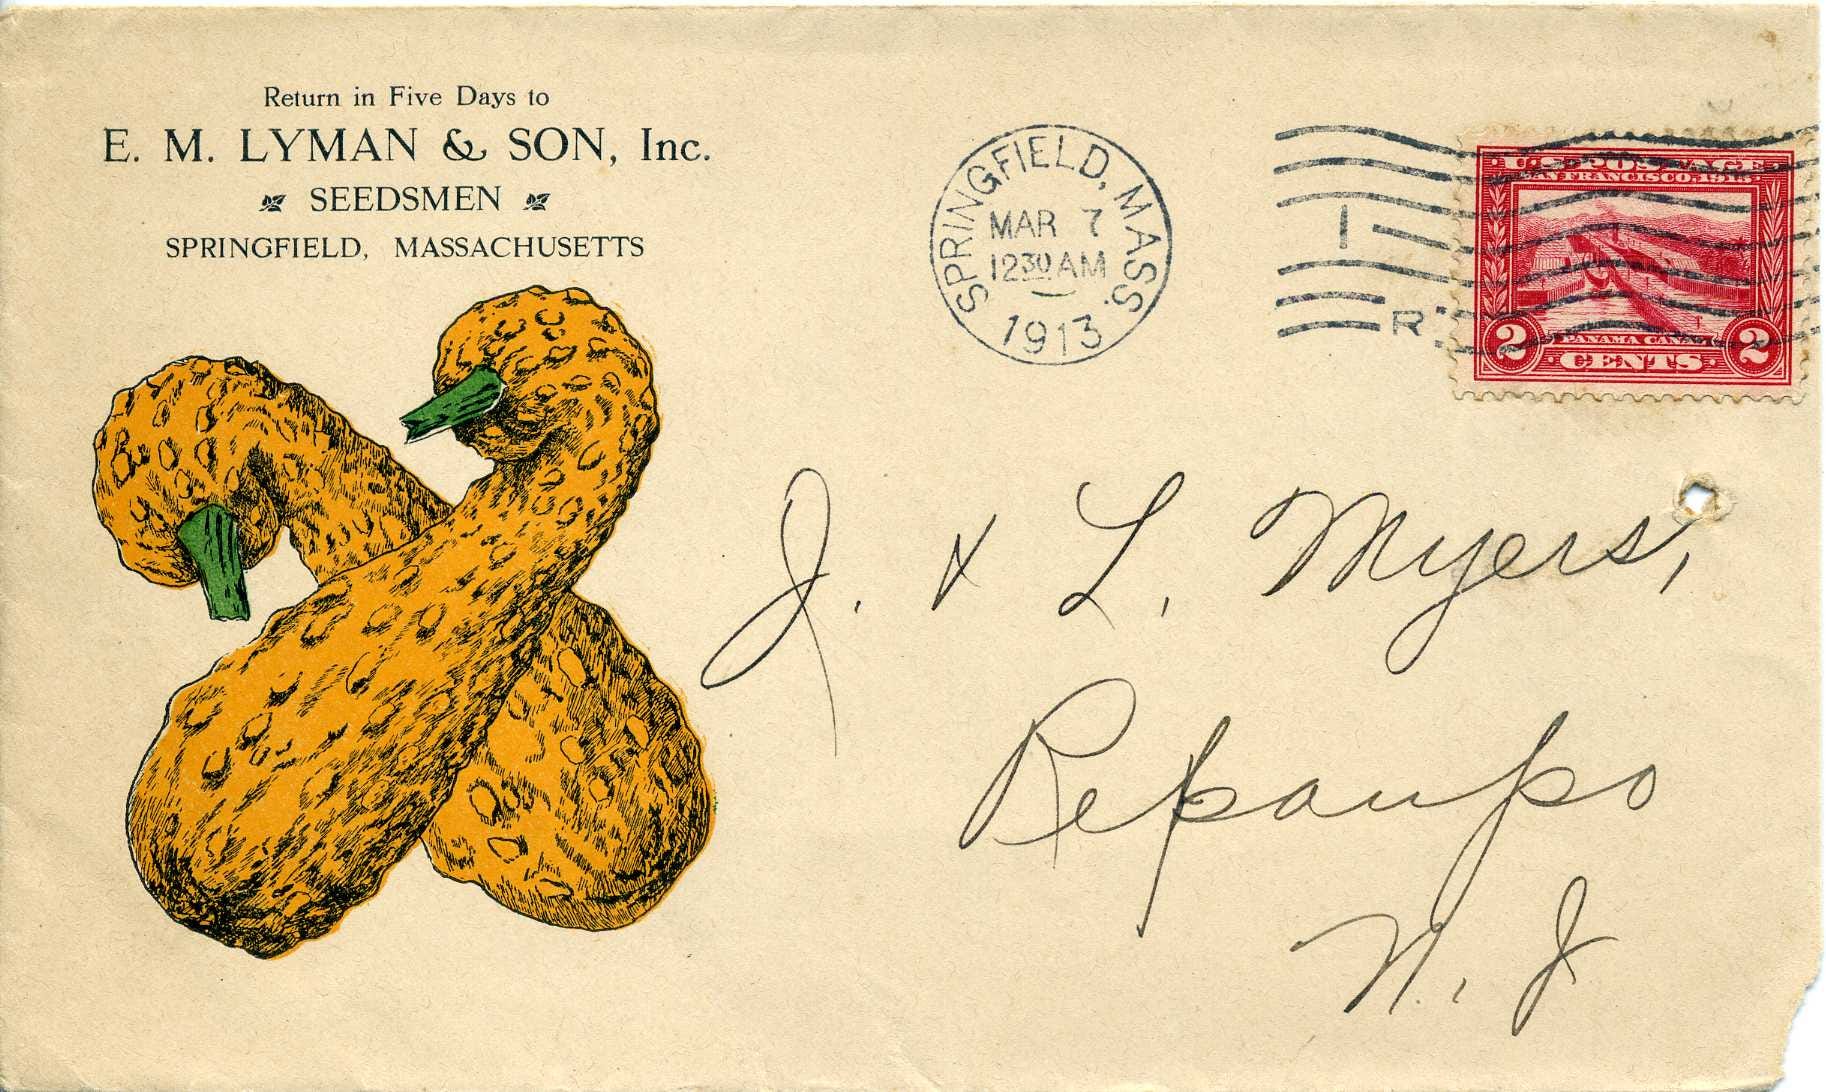 Return in Five Days to
E. M. LYMAN & SON, Inc.
SEEDSMEN
SPRINGFIELD, MASSACHUSETTS
SPRINGFIELD, MASS.
MAR 7
12 30 AM
1913
1
R
U.S. POSTAGE
SAN FRANCISCO, 1915
PANAMA CANAL
2 CENTS 2
J. & L. Myers,
Repaupo
N. J